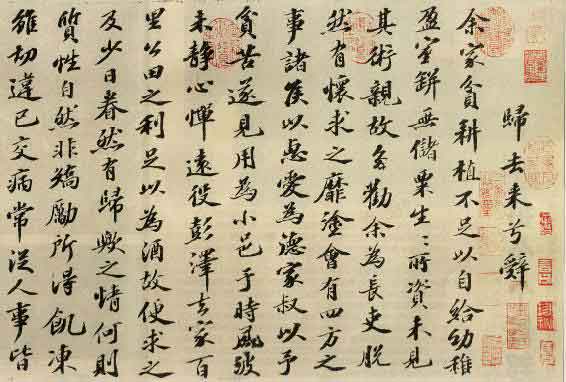 歸去来兮辭
余家貧耕植不足以自給幼稚
盈室缾無儲粟生〻所資未見
其術親故多勸余為長吏脱
然有懷求之靡塗會有四方之
事諸侯以惠愛為德家叔以予
貧苦遂見用為小邑于時風波
未静心憚遠役彭澤去家百
里公田之利足以為酒故便求之
及少日眷然有歸歟之情何則
質性自然非矯勵所得飢凍
雖切違已交病常從人事皆